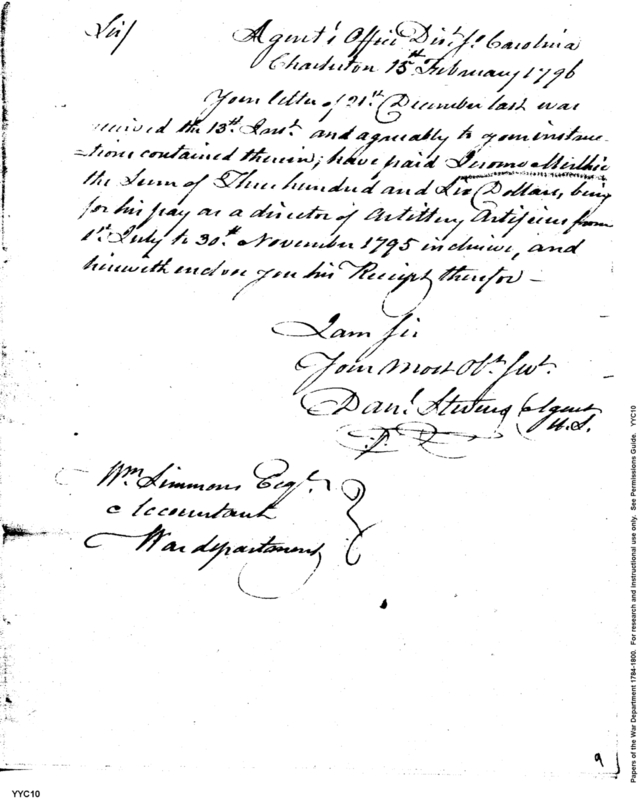 Sir/
Agent's Office Dist. So. Carolina
Charleston 15th February 1796
Your letter of 21st December last was
received the 13th Inst. and agreably to your instruc-
-tions contained therein; have paid Jerome
the Sum of Three hundred and Dollars, being
for his pay as a director of Artillery Artificers from
1st July to 30th November 1795 inclusive, and
herewith enclose you his Receipt therefor -
I am Sir
Your most Obt. Svt.
Danl. Stevens Agent
U.S.
Wm. Simmons Esqr.
Accountant
War department
9
Papers of the War Department 1784-1800. For research and instructional use only. See Permissions Guide. YYC10
YYC10